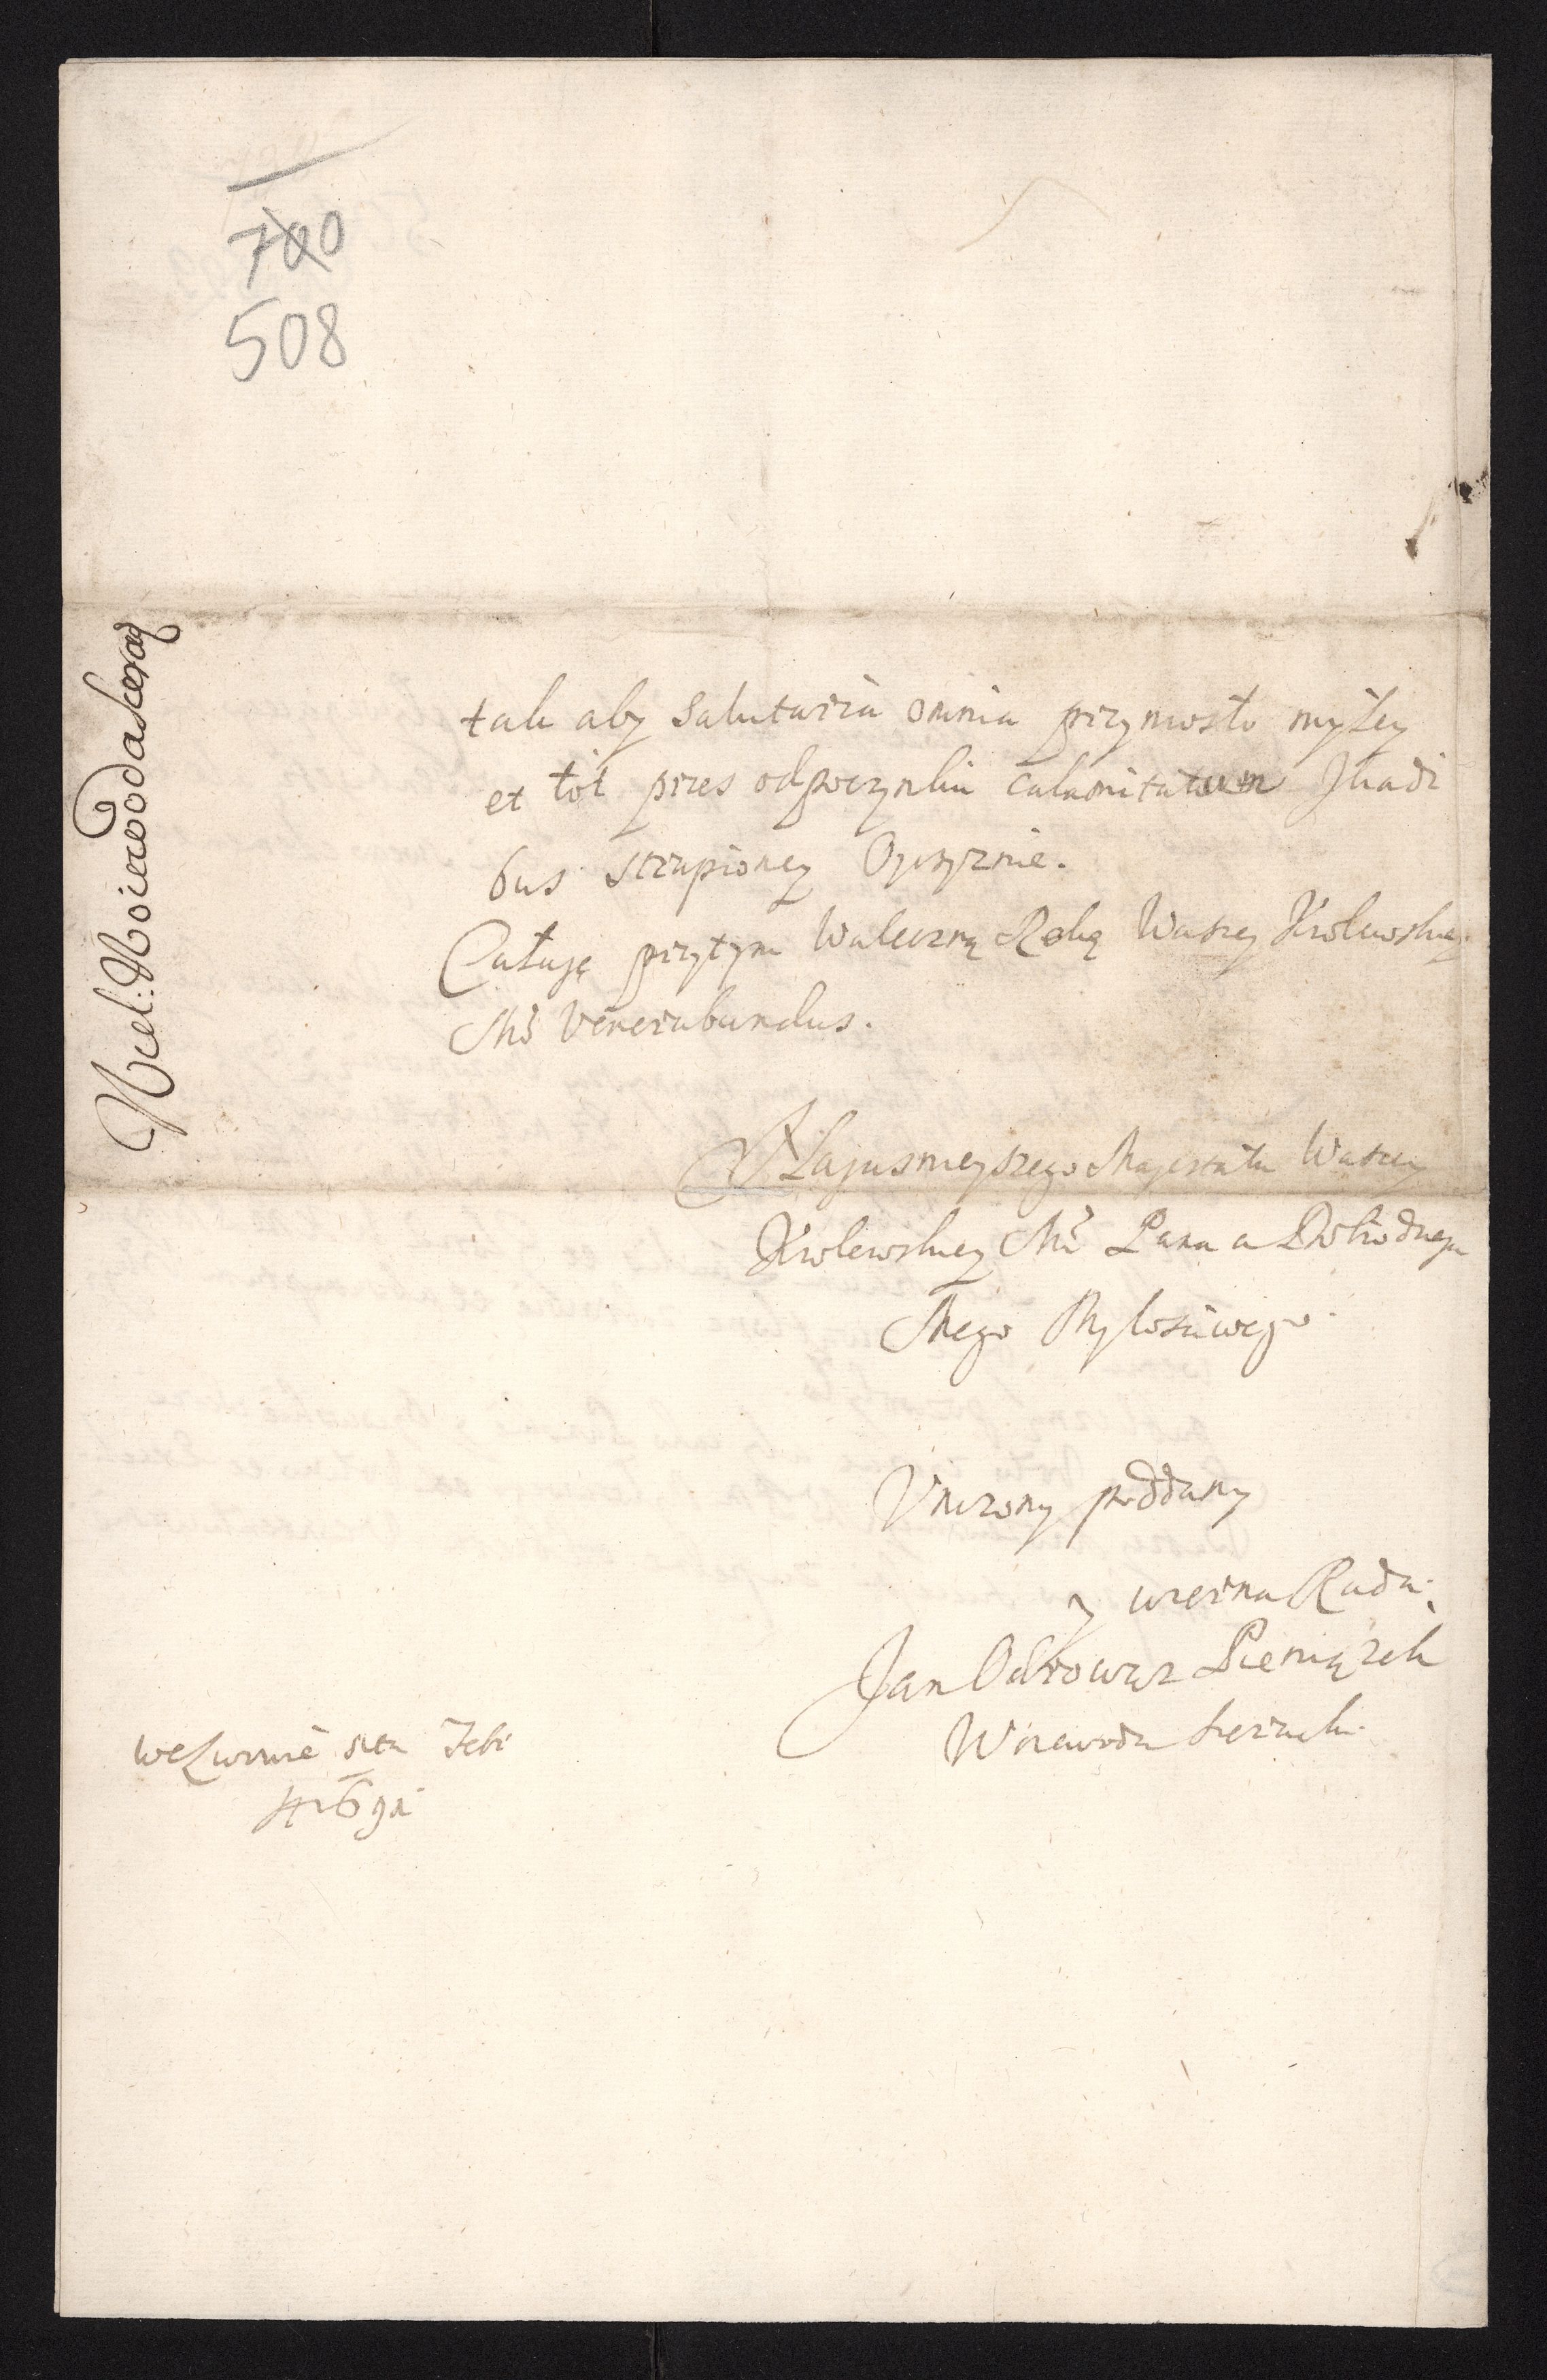 700
508
Wiel: Woiewoda sierad
tak aby salutaria omnia przyniosło myłey
et tot przes odpoczynku calamitatum Iliadi
bus strapioney Oyczyznie.
Całuję przytym Waleczną Rękę Waszey Krolewskiey
Mci Venerabundus.
Najasnieyszego Majestatu Waszey
Krolewskiey Mci Pana a Dobrodzieja
Mego Mylosciwego
Vnizony poddany
y wierna Rada.
Jan Odrowąz Pieniązek
Woiewoda Sieradzki.
we Lwowie